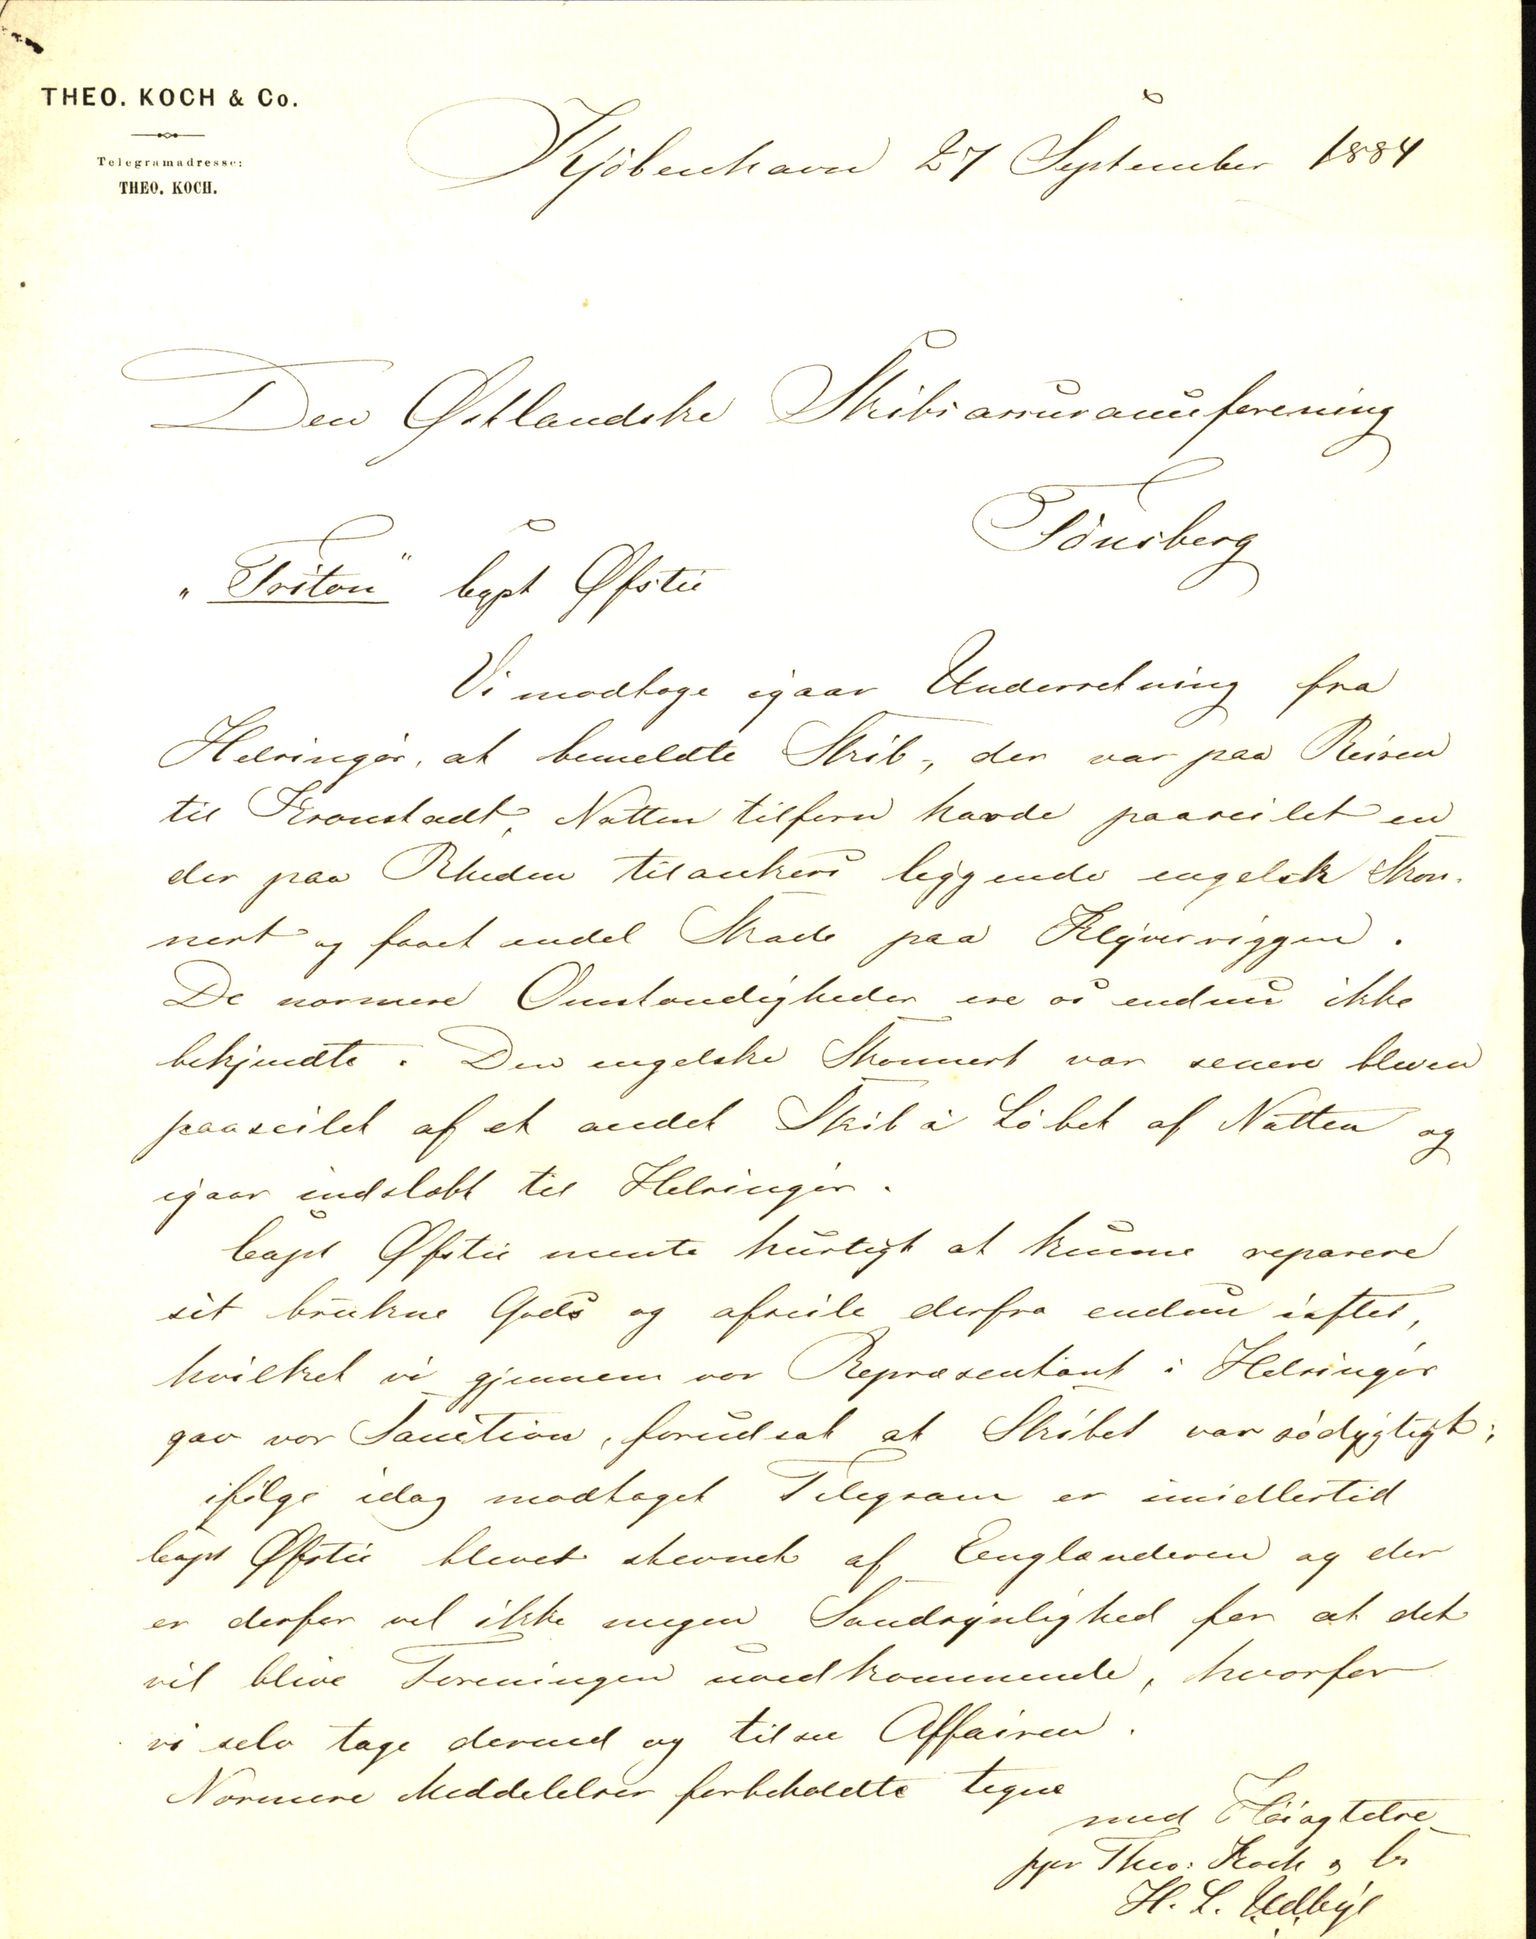 THEO. KOCH & Co.
Telegramadresse:
THEO. KOCH.
Kjöbenhavn 27 September 1884
Den Østlandske Skibsassuranceforening
Tönsberg
"Triton" Capt Øfstie
Vi modtoge igaar Underretning fra
Helsingör, at bemeldte Skib, der var paa Reisen
til Kronstadt, Natten tilforn havde paaseilet en
der paa Rheden tilankers liggende engelsk Skon-
nert og faaet endel Skade paa Klyverriggen.
De nærmere Omstændigheder ere os endnu ikke
bekjendte. Den engelske Skonnert var senere bleven
paaseilet af et andet Skib i Löbet af Natten og
igaar indslæbt til Helsingör.
Capt Øfstie mente hurtigt at kunne reparere
sit brukne Gods og afseile derfra endnu iaftes,
hvilket vi gjennem vor Repræsentant i Helsingör
gav vor Sanction, forudsat at Skibet var södygtigt;
ifölge idag modtaget Telegram er imidlertid
Capt Øfstie blevet stevnet af Englænderen og der
er derfor vel ikke megen Sandsynlighed for at det
vil blive Foreningen uvedkommende, hvorfor
vi selv tage derned og tilse Affairen.
Nærmere Meddelelser forbeholdte tegne
med Höiagtelse
ppr Theo: Koch & Co
H. L. Udbye